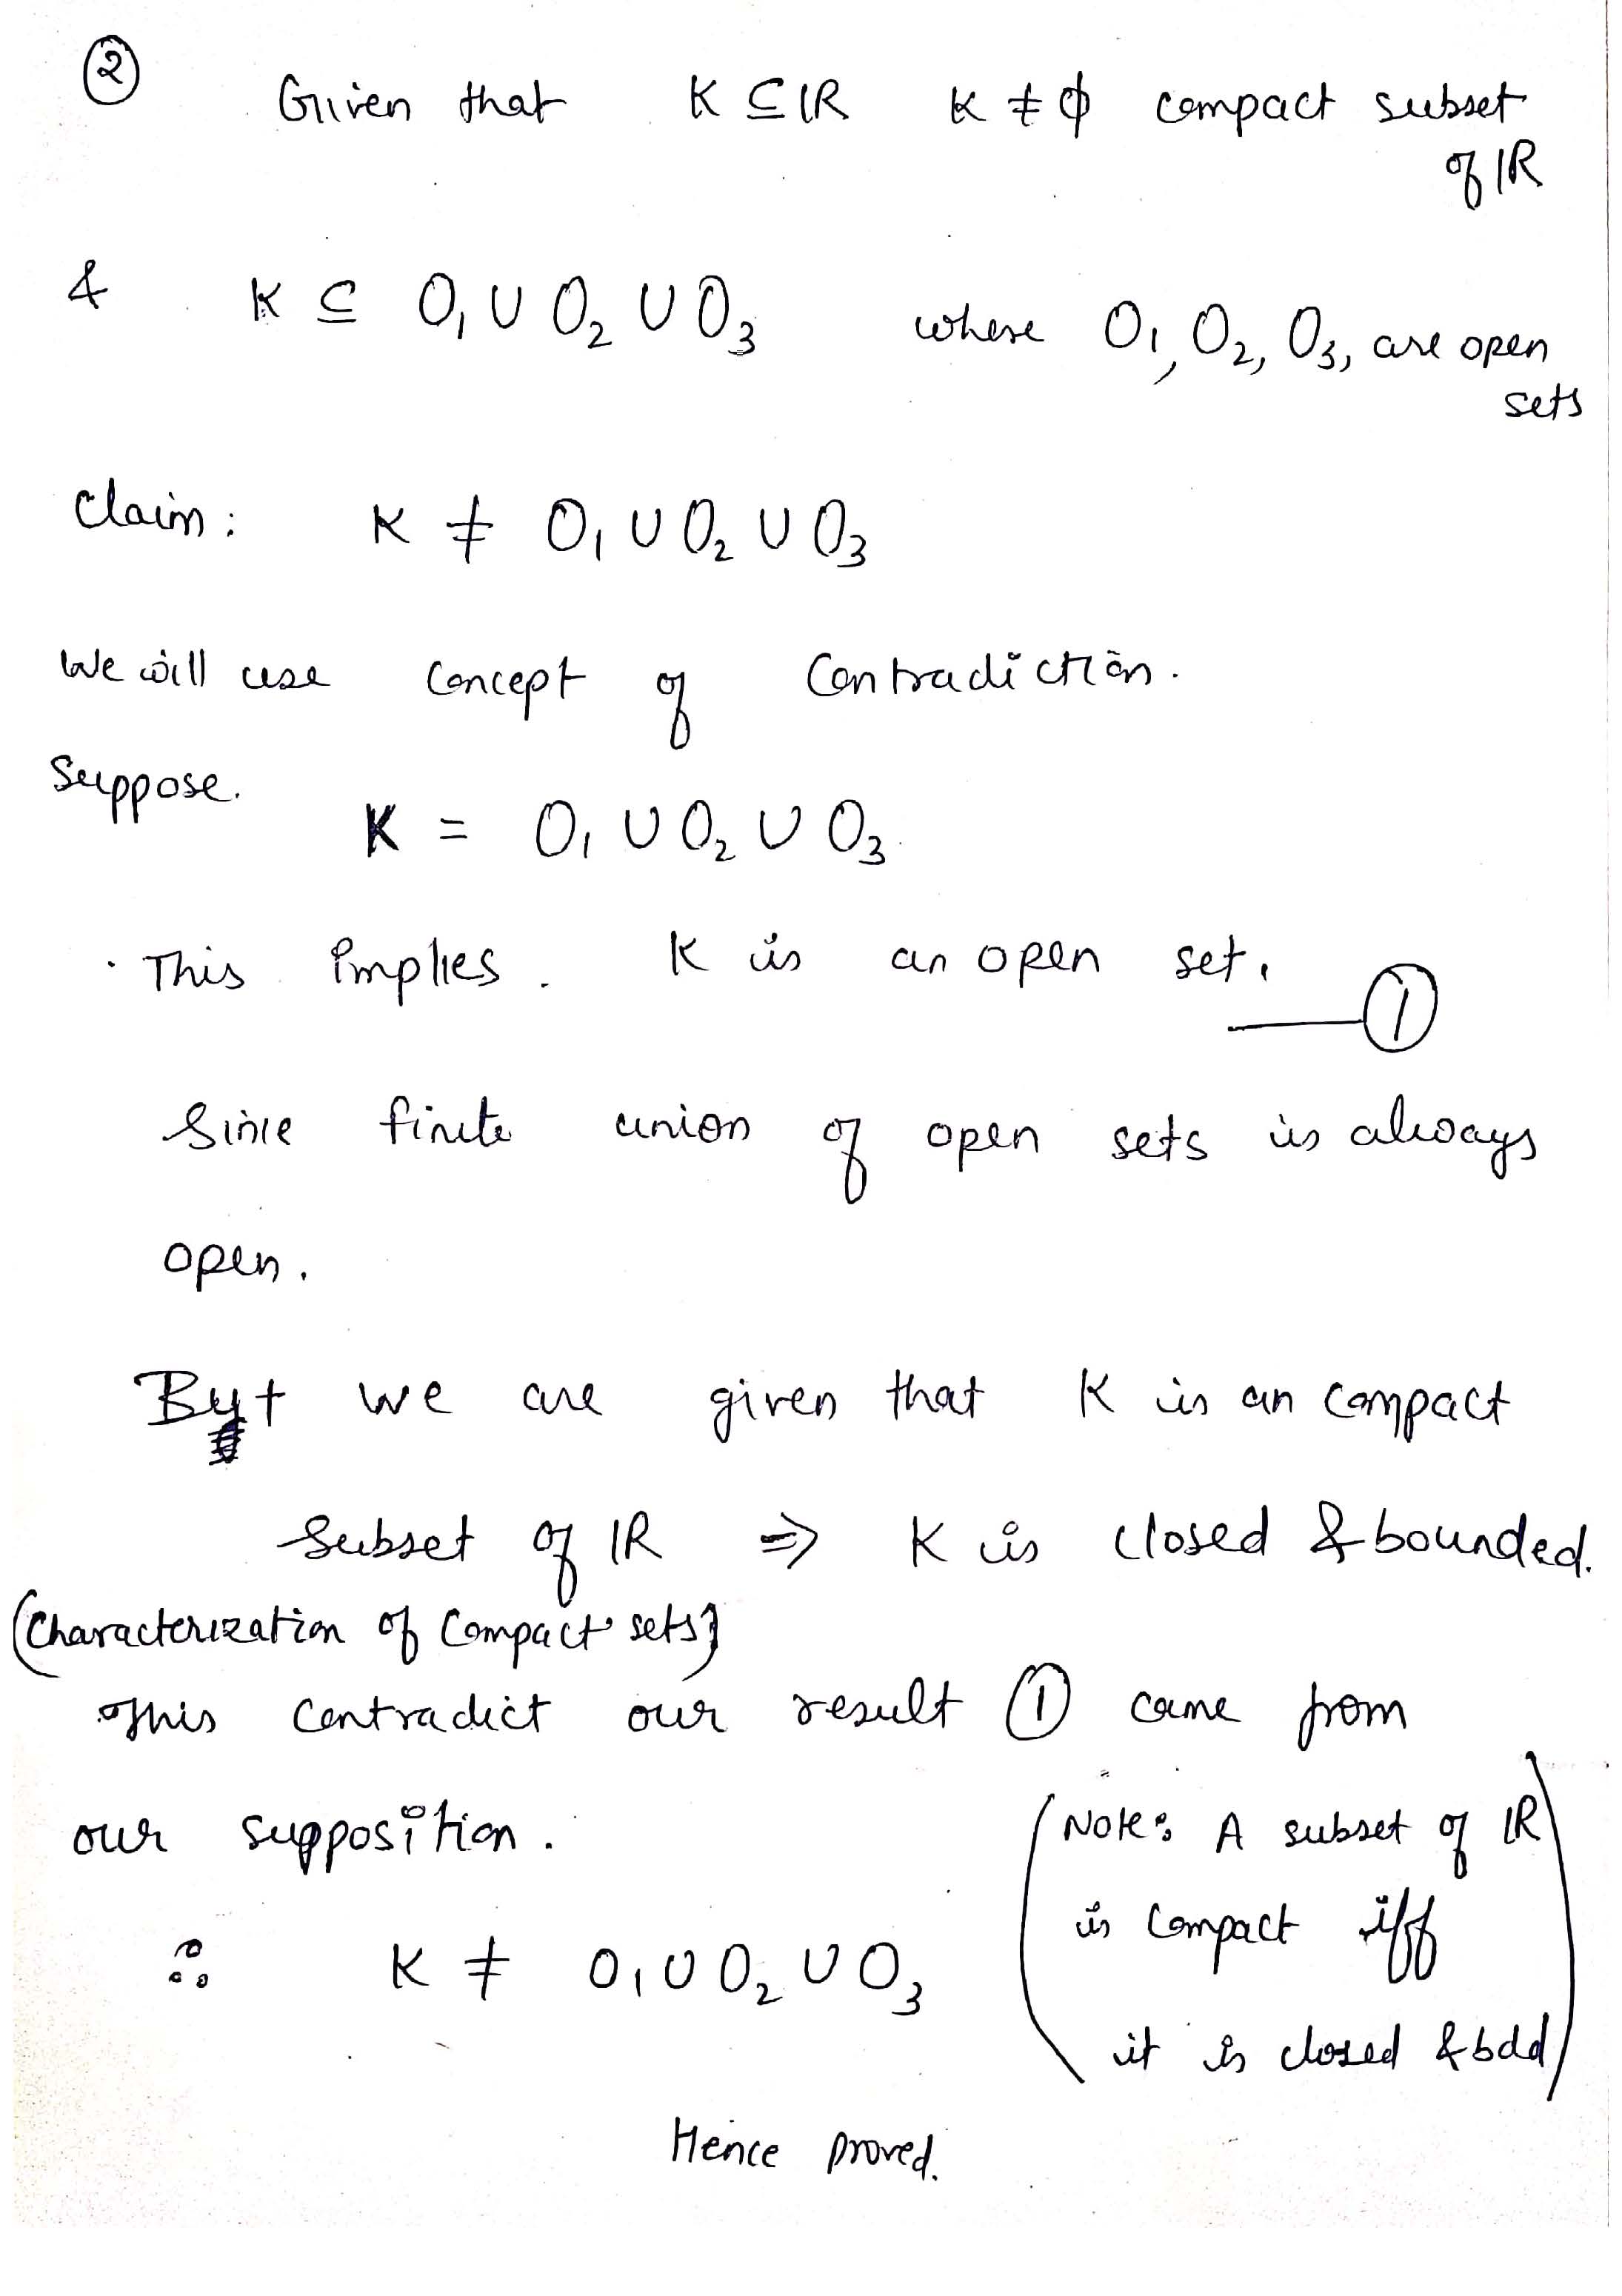 ②
Given that K ⊆ IR K ≠ ϕ compact subset
of IR
& K ⊆ O₁ ∪ O₂ ∪ O₃ where O₁, O₂, O₃, are open
sets
Claim: K ≠ O₁ ∪ O₂ ∪ O₃
We will use concept of Contradiction.
Suppose.
K = O₁ ∪ O₂ ∪ O₃.
· This implies. K is an open set. —— ①
Since finite union of open sets is always
open.
But we are given that K is an compact
Subset of IR ⇒ K is closed & bounded.
(Characterization of Compact sets)
This contradict our result ① came from
our supposition.
∴ K ≠ O₁ ∪ O₂ ∪ O₃
(Note: A subset of IR
is compact iff
it is closed & bdd)
Hence proved.